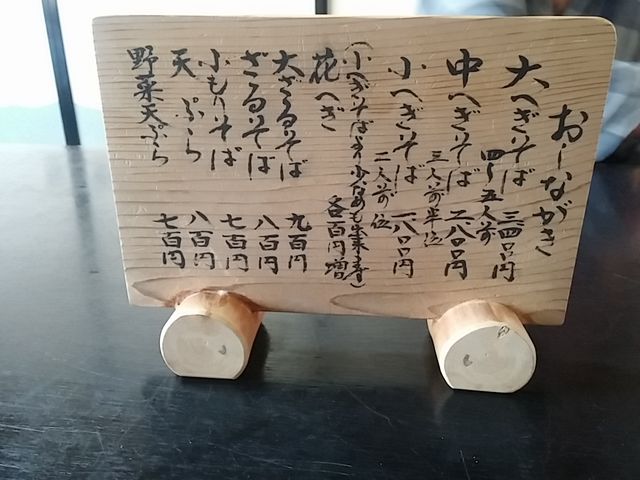 おしながき
大へぎそば 三四〇〇円
四〜五人前
中へぎそば 二八〇〇円
三人前単位
小へぎそば 一八〇〇円
二人前位
(小へぎそばより少なめも出来ます)
花へぎ 各百円増
大ざるそば 九百円
ざるそば 八百円
小もりそば 七百円
天ぷら 八百円
野菜天ぷら 七百円